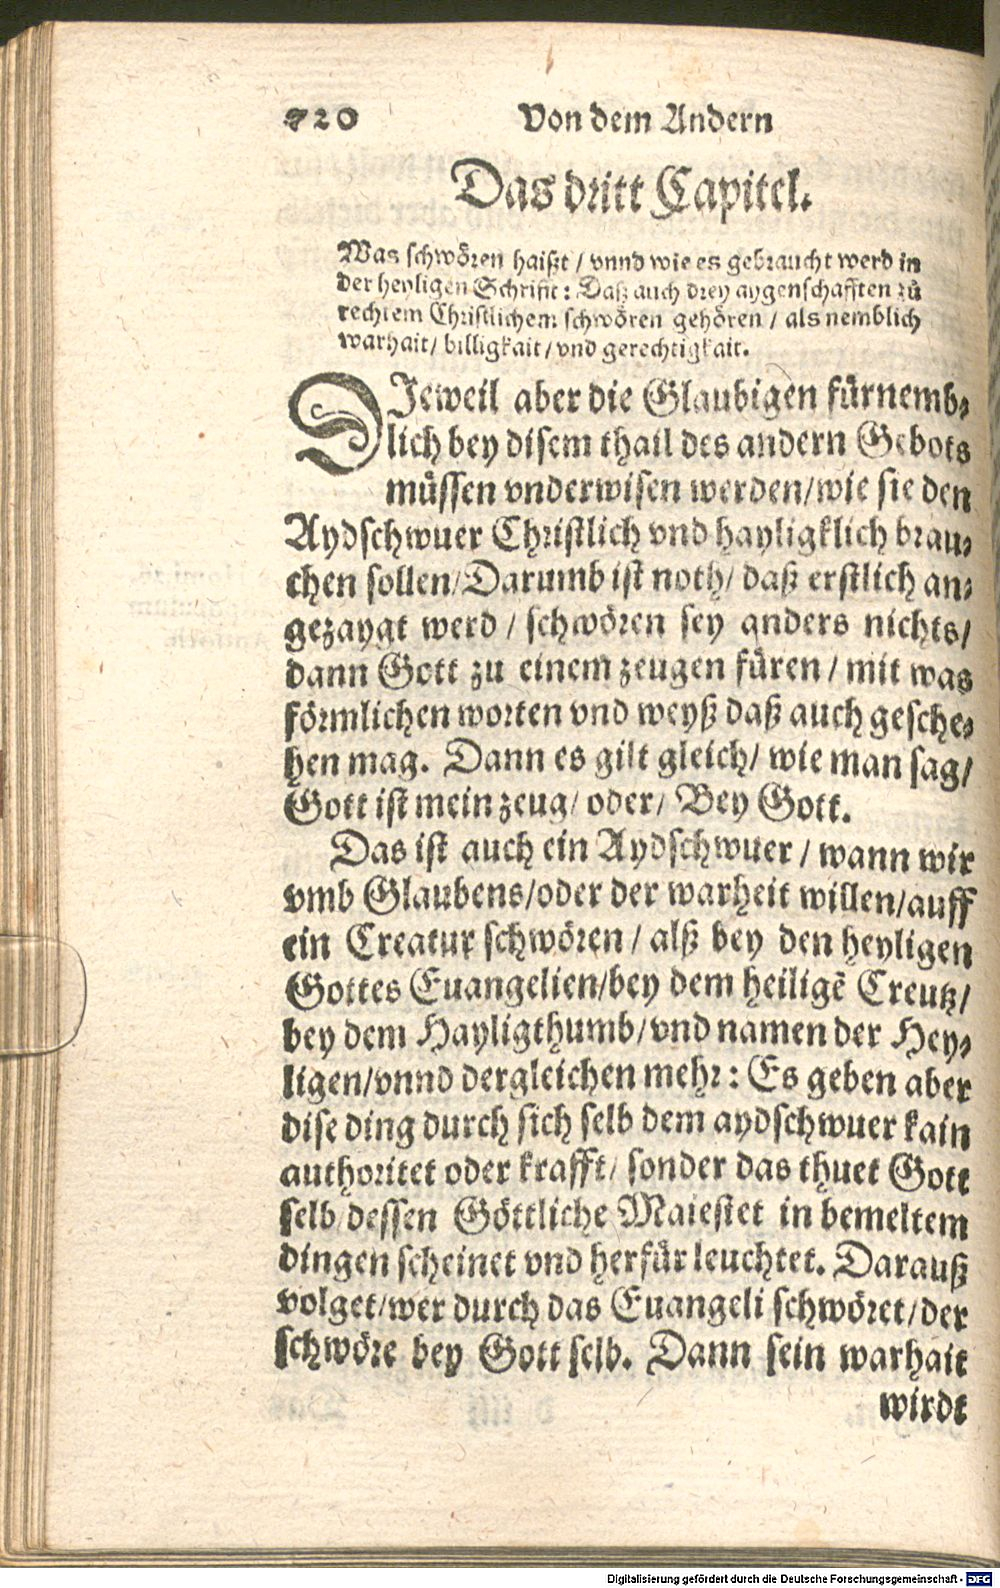 720 Von dem Andern
Das dritt Capitel.
Was schwören haißt / vnnd wie es gebraucht werd in
der heyligen Schrifft: Daß auch drey aygenschafften zů
rechtem Christlichem schwören gehören / als nemblich
warhait / billigkait / vnd gerechtigkait.
DIeweil aber die Glaubigen fürnemb⸗
lich bey disem thail des andern Gebots
müssen vnderwisen werden/wie sie den
Aydschwuer Christlich vnd hayligklich brau⸗
chen sollen/Darumb ist noth/ daß erstlich an⸗
gezaygt werd / schwören sey anders nichts/
dann Gott zu einem zeugen füren / mit was
förmlichen worten vnd weyß daß auch gesche⸗
hen mag. Dann es gilt gleich/ wie man sag/
Gott ist mein zeug/ oder/ Bey Gott.
Das ist auch ein Aydschwuer / wann wir
vmb Glaubens/oder der warheit willen/auff
ein Creatur schwören / alß bey den heyligen
Gottes Euangelien/bey dem heiligē Creutz/
bey dem Hayligthumb/vnd namen der Hey⸗
ligen/vnnd dergleichen mehr: Es geben aber
dise ding durch sich selb dem aydschwuer kain
authoritet oder krafft/ sonder das thuet Gott
selb/dessen Göttliche Maiestet in bemeltem
dingen scheinet vnd herfür leuchtet. Darauß
volget/wer durch das Euangeli schwöret/der
schwöre bey Gott selb. Dann sein warhait
wirdt
Digitalisierung gefördert durch die Deutsche Forschungsgemeinschaft - DFG